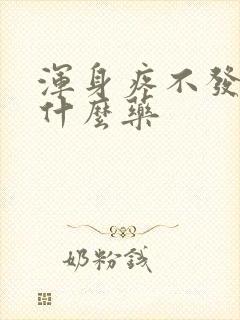 渾身疼不發
什麼藥
奶粉錢